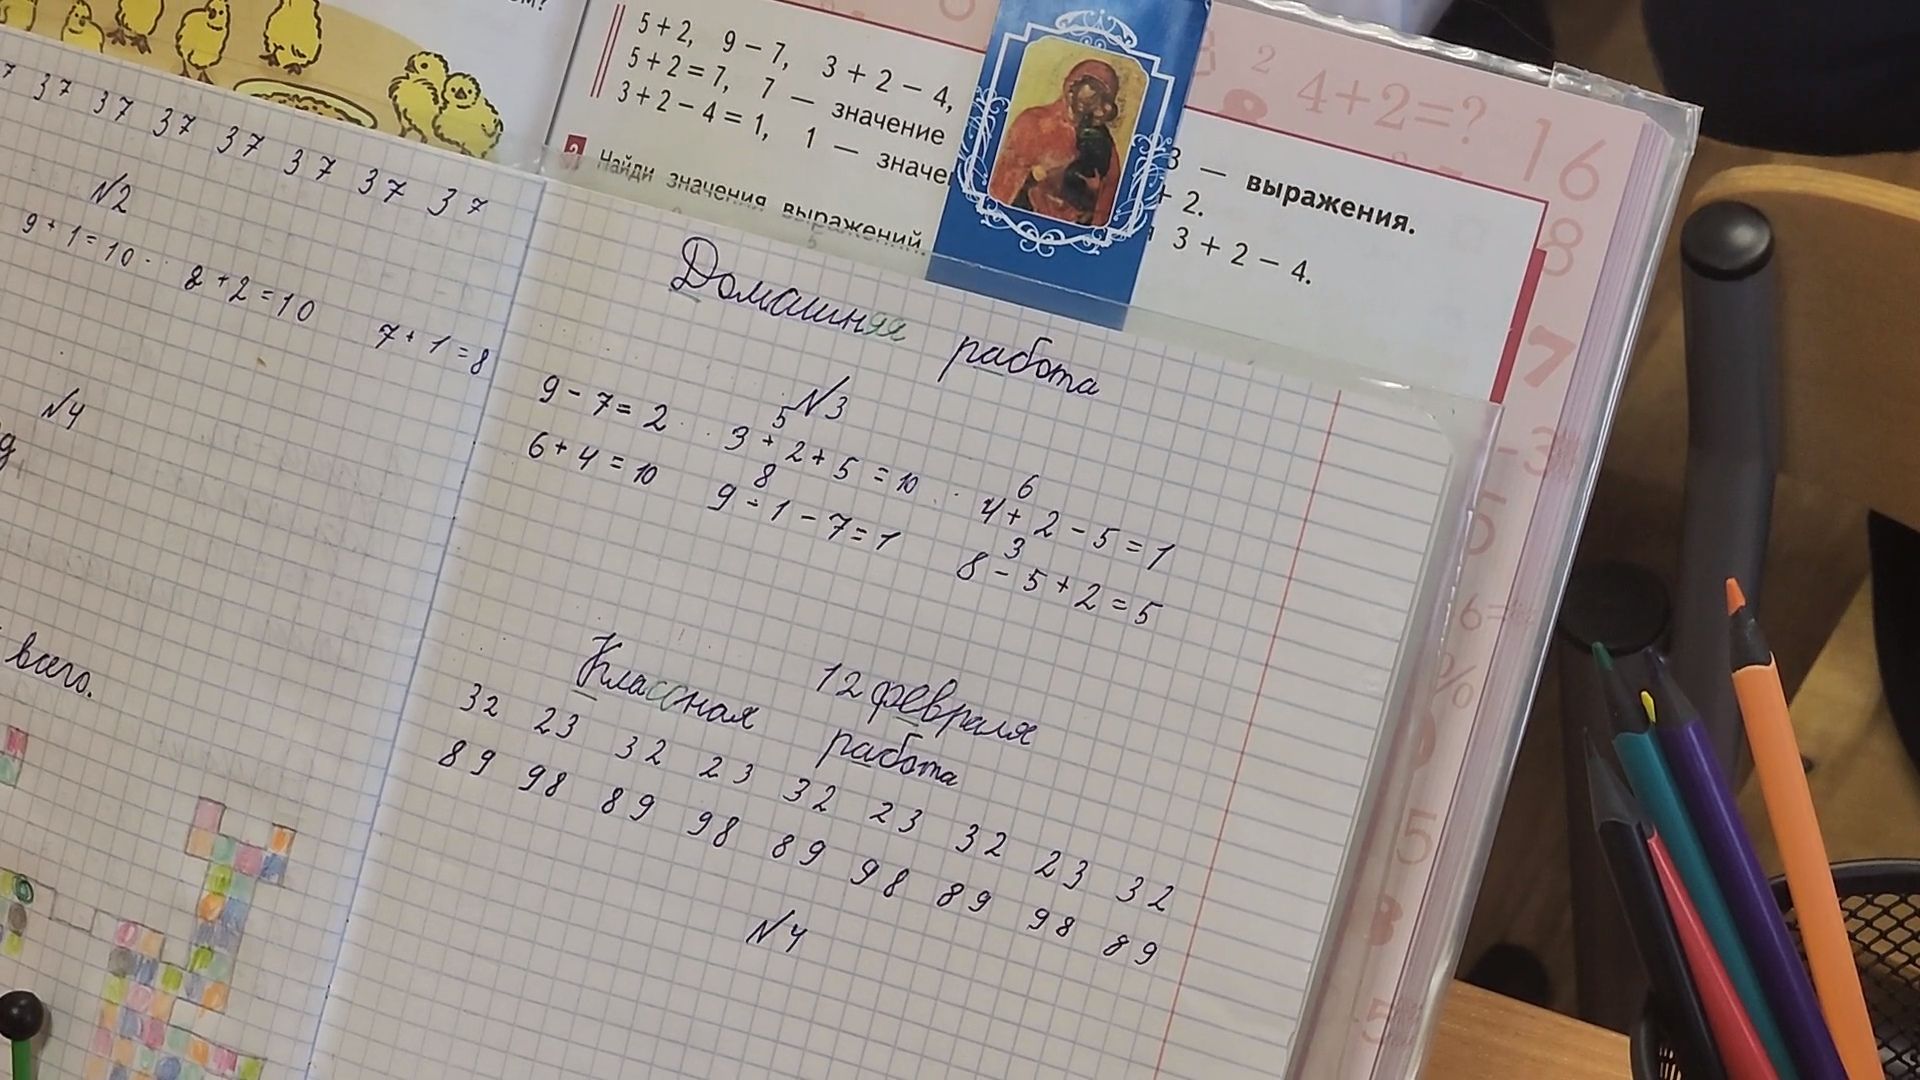 5 + 2, 9 − 7, 3 + 2 − 4,
5 + 2 = 7, 7 — значение
3 + 2 − 4 = 1, 1 — значе
— выражения.
+ 2.
3 + 2 − 4.
Найди значения выражений.
4+2=? 16
8
7
37 37 37 37 37 37 37
№2
9+1=10 8+2=10 7+1=8
№4
всего.
Домашняя работа
№3
5 6
9-7=2 3+2+5=10 4+2-5=1
8 3
6+4=10 9-1-7=1 8-5+2=5
12 февраля
Классная работа
32 23 32 23 32 23 32 23 32
89 98 89 98 89 98 89 98 89
№4